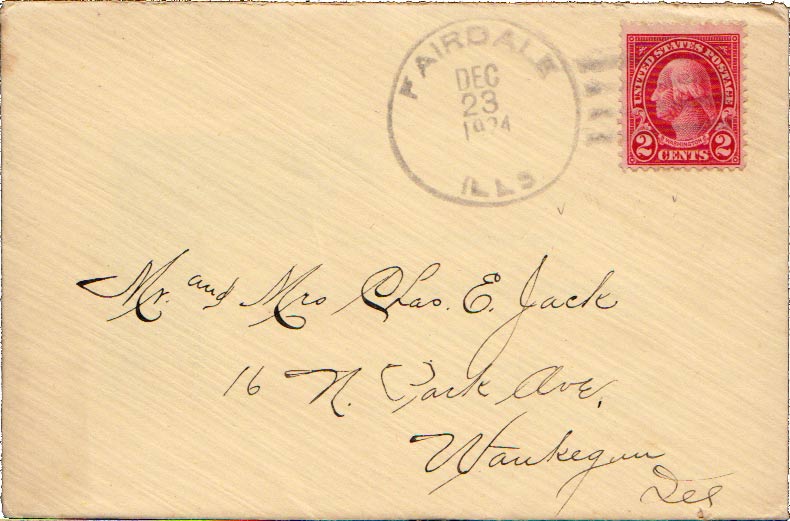 FAIRDALE
DEC
23
1924
ILLS
UNITED STATES POSTAGE
WASHINGTON
2 CENTS 2
Mr. and Mrs Chas. E. Jack
16 N. Park Ave.
Waukegan
Ills